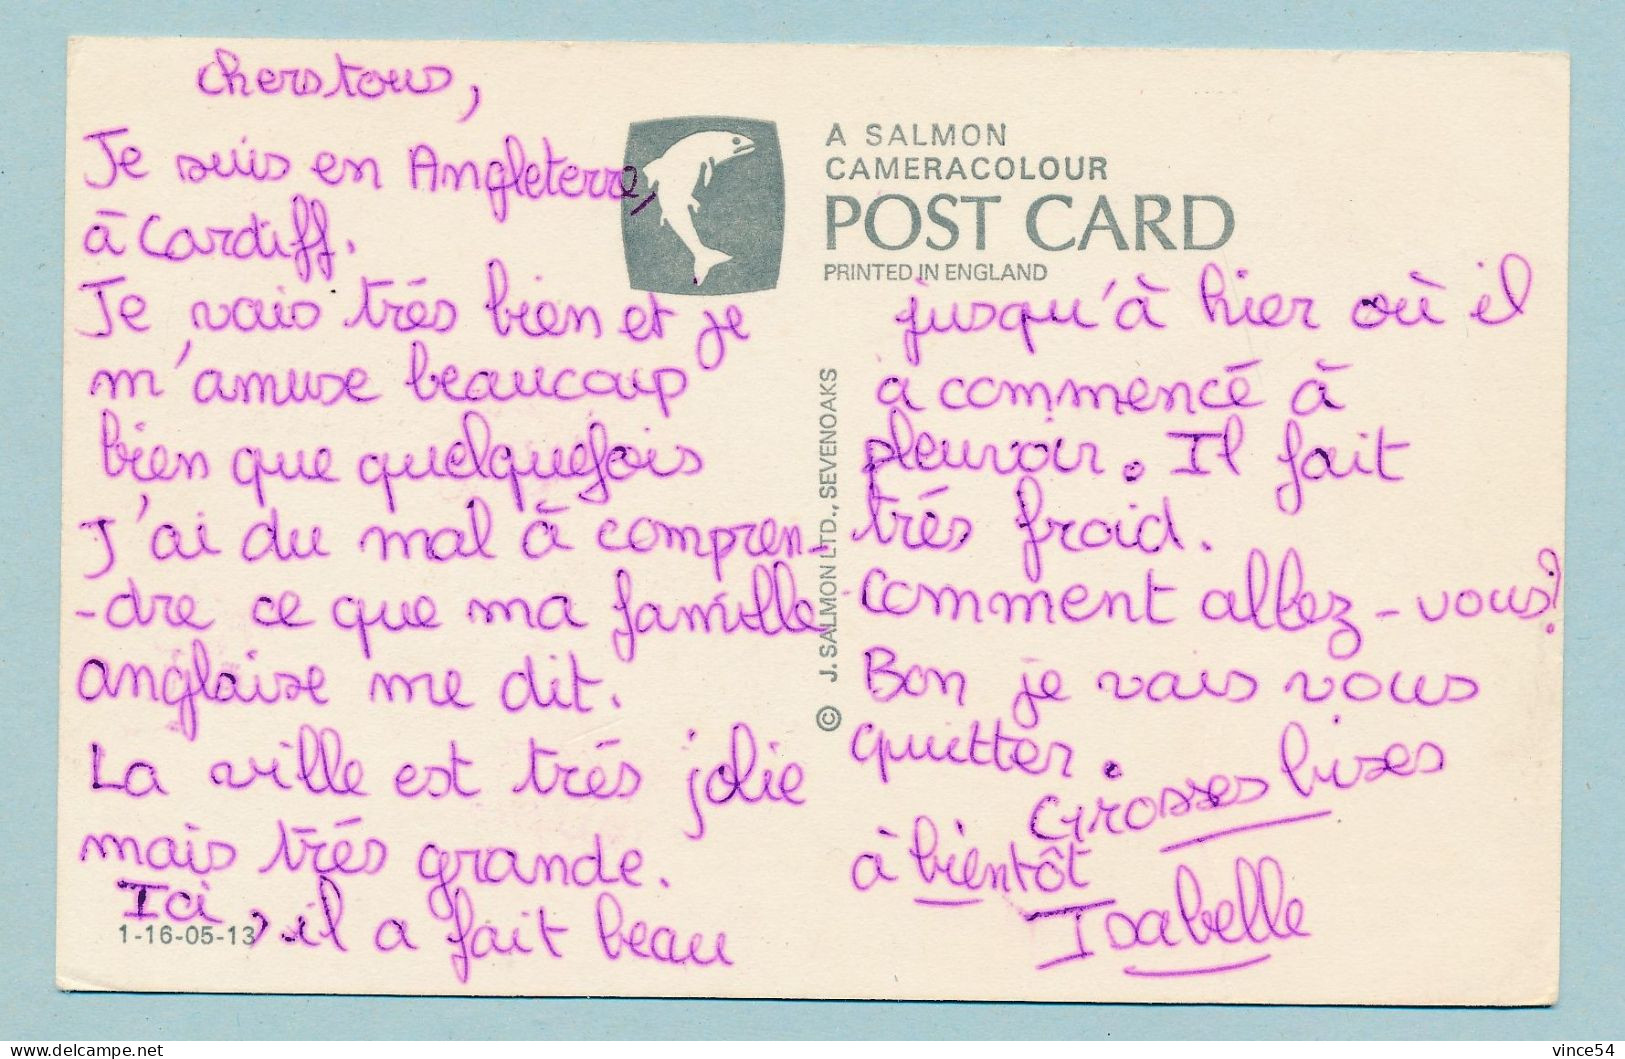 chers tous,
Je suis en Angleterre,
à Cardiff.
Je vais très bien et je
m'amuse beaucoup
bien que quelquefois
J'ai du mal à compren-
-dre ce que ma famille
anglaise me dit.
La ville est très jolie
mais très grande.
Ici, il a fait beau
1-16-05-13
A SALMON
CAMERACOLOUR
POST CARD
PRINTED IN ENGLAND
© J. SALMON LTD., SEVENOAKS
jusqu'à hier où il
a commencé à
pleuvoir. Il fait
très froid.
comment allez-vous?
Bon je vais vous
quitter.
Grosses bises
à bientôt
Isabelle
delcampe.net
vince54